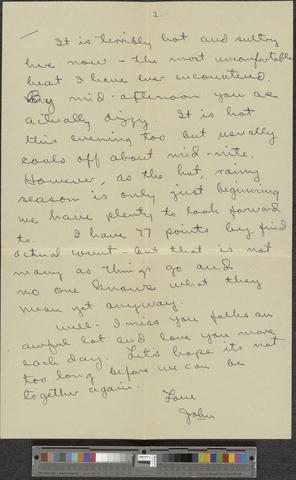 2.
It is terribly hot and sultry
here now - the most uncomfortable
heat I have ever encountered.
By mid-afternoon you are
actually dizzy. It is hot
this evening too but usually
cools off about mid-nite.
However, as the hot, rainy
season is only just beginning
we have plenty to look forward
to. I have 77 points by
actual count - but that is not
many as things go and
no one knows what they
mean yet anyway.
Well - I miss you folks an
awful lot and love you more
each day. Let's hope its not
too long before we can be
together again.
Love
John